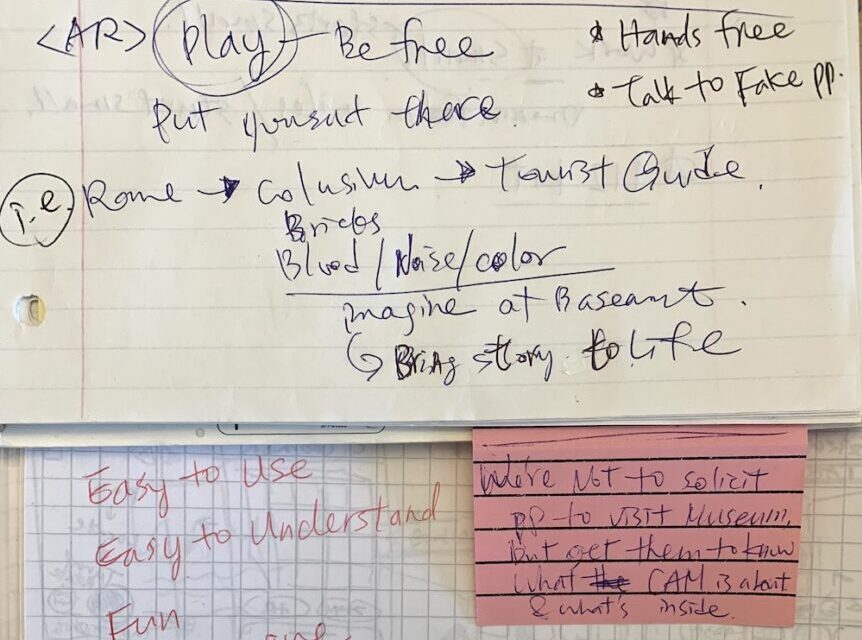 <AR> Play - Be free
* Hands free
* Talk to Fake pp.
Put yourself there.
i.e. Rome → Colusium → Tourist Guide.
Bricks
Blood / Noise / color
imagine at Baseamt.
↳ Bring story to Life
Easy to Use
Easy to Understand
Fun
We're Not to solicit
pp to visit Museum,
But get them to know
what CAM is about
& what's inside.